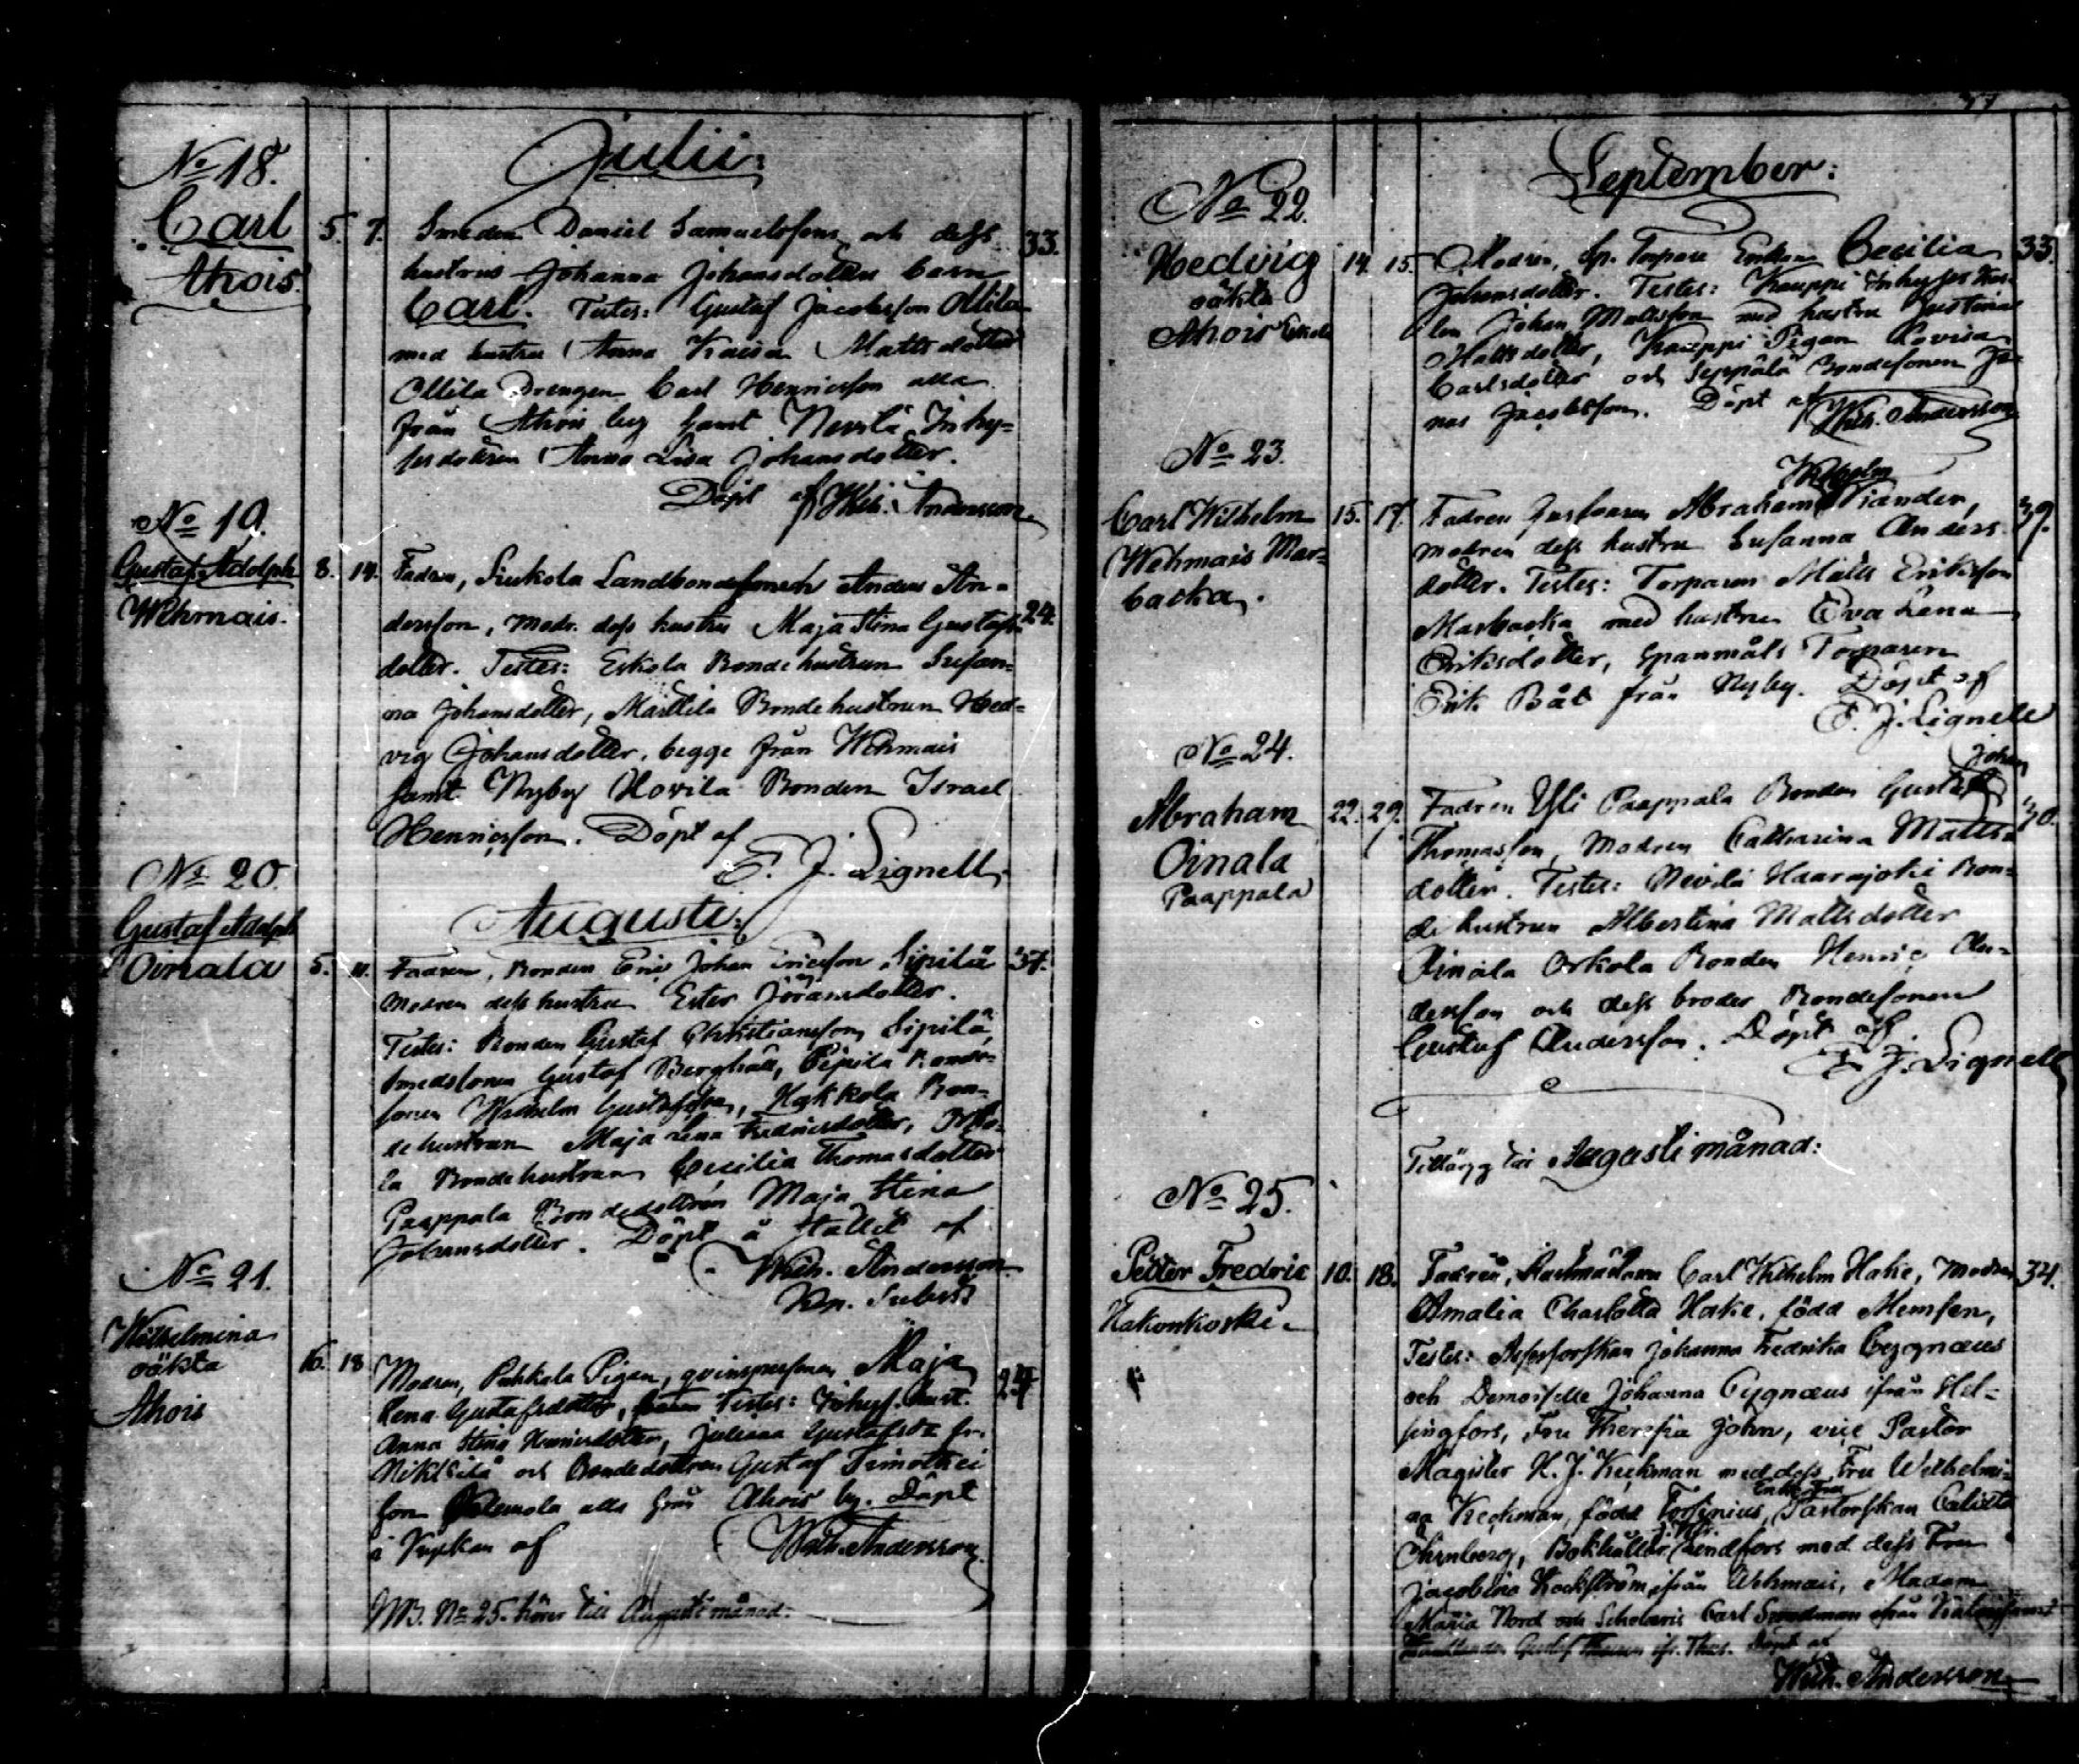 Julii:
No 18.
Carl
Ahois.
5. 7.
Smeden Daniel Samuelsson och dess 33.
hustrus Johanna Johansdotters barn
Carl. Testes: Gustaf Jacobsson Ollila
med hustru Anna Kaisa Mattsdotter
Ollila Drengen Carl Henricsson alla
från Ahois by samt Nevilä Inhy-
sesdottren Anna Lisa Johansdotter.
Döpt af Wilh. Andersson.
No 19.
Gustaf Adolph
Wehmais.
8. 14.
Fadren, Landbondesonen Anders An-
dersson, Modr. dess hustru Maja Stina Gustafs- 24.
dotter. Testes: Eskola Bondehustrun Susan-
na Johansdotter, Marttila Bondehustrun Hed-
vig Johansdotter, begge från Wehmais
samt Nyby Hovila Bonden Israel
Henricsson. Döpt af
E. J. Lignell.
Augusti:
No 20
Gustaf Adolph
Oinala
5. 11.
Fadren, Bonden Eric Johan Ericsson Sipilä 37.
Modren dess hustru Ester Jöransdotter.
Testes: Bonden Gustaf Christiansson Sipilä,
Smedsonen Gustaf Berghäll, Sipilä Bonde-
sonen Wilhelm Gustafsson, Hakkola Bon-
dehustrun Maja Lena Fredricsdotter,
la Bondehustrun Cecilia Thomasdotter
Paappala Bondedottren Maja Stina
Johansdotter. Döpt å Stället af
Wilh. Andersson
Kap. Subst.
No 21.
Wilhelmina
oäkta
Ahois
16. 18
Modren, Pukkala Pigan, qvinspersonen Maja
Lena Gustafsdotter, Testes: Inhys. hust. 24
Anna Stina Henricsdotter, Juliana Gustafsdr fr.
och Bondedottren Gustaf Timothei
son alla från Ahois by. Döpt
i Kyrkan af Wilh. Andersson
NB. No 25. hörer till Augusti månad.
September:
No 22.
Hedvig
oäkta
Ahois
14. 15.
Modren, Torpare Enkan Cecilia 33.
Johansdotter. Testes: Kauppi Inhyses Kar-
len Johan Mattsson med hustru Justina
Mattsdotter, Kauppi Pigan Lovisa
Carlsdotter och Seppälä Bondesonen Jo-
nas Jacobsson. Döpt af
Wilh. Andersson
No 23.
Carl Wilhelm
Wehmais Mar-
backa.
15. 17.
Wilhelm
Fadren Abraham Niander, 39.
modren dess hustru Susanna Anders-
dotter. Testes: Torparen Matts Eriksson
Marbacka med hustru Eva Lena
Eriksdotter, Spanmåls Torparen
Erik Båt från Nyby. Döpt af
E. J. Lignell
No 24.
Abraham
Oinala
Paappala
22. 29.
Johan
Fadren Yli Paappala Bonden Gustaf 30.
Thomasson, Modren Catharina Matts-
dotter. Testes: Nevilä Haarajoki Bon-
de hustrun Albertina Mattsdotter
Oinala Orkola Bonden Henric An-
dersson och dess broder Bondesonen
Gustaf Andersson. Döpt af
E. J. Lignell
Tillägg till Augusti månad:
No 25.
Petter Fredric
Hakonkoski.
10. 18.
Fadren, Carl Wilhelm Hake, Modren 34.
Amalia Charlotta Hake, född Memsen,
Testes: Assessorskan Johanna Fredrika Cygnæus
och Demoiselle Johanna Cygnæus ifrån Hel-
singfors, Fru Theresia John, vice Pastor
Magister K. J. Keckman med dess Fru Wilhelmi-
na Keckman, född Forsenius, Pastorskan
Ehrnberg, Bokhållar med dess Fru
Jacobina ifrån Wehmais, Madam
Maria Nord och Scholaris Carl ifrån
Gustaf Döpt af
Wilh. Andersson